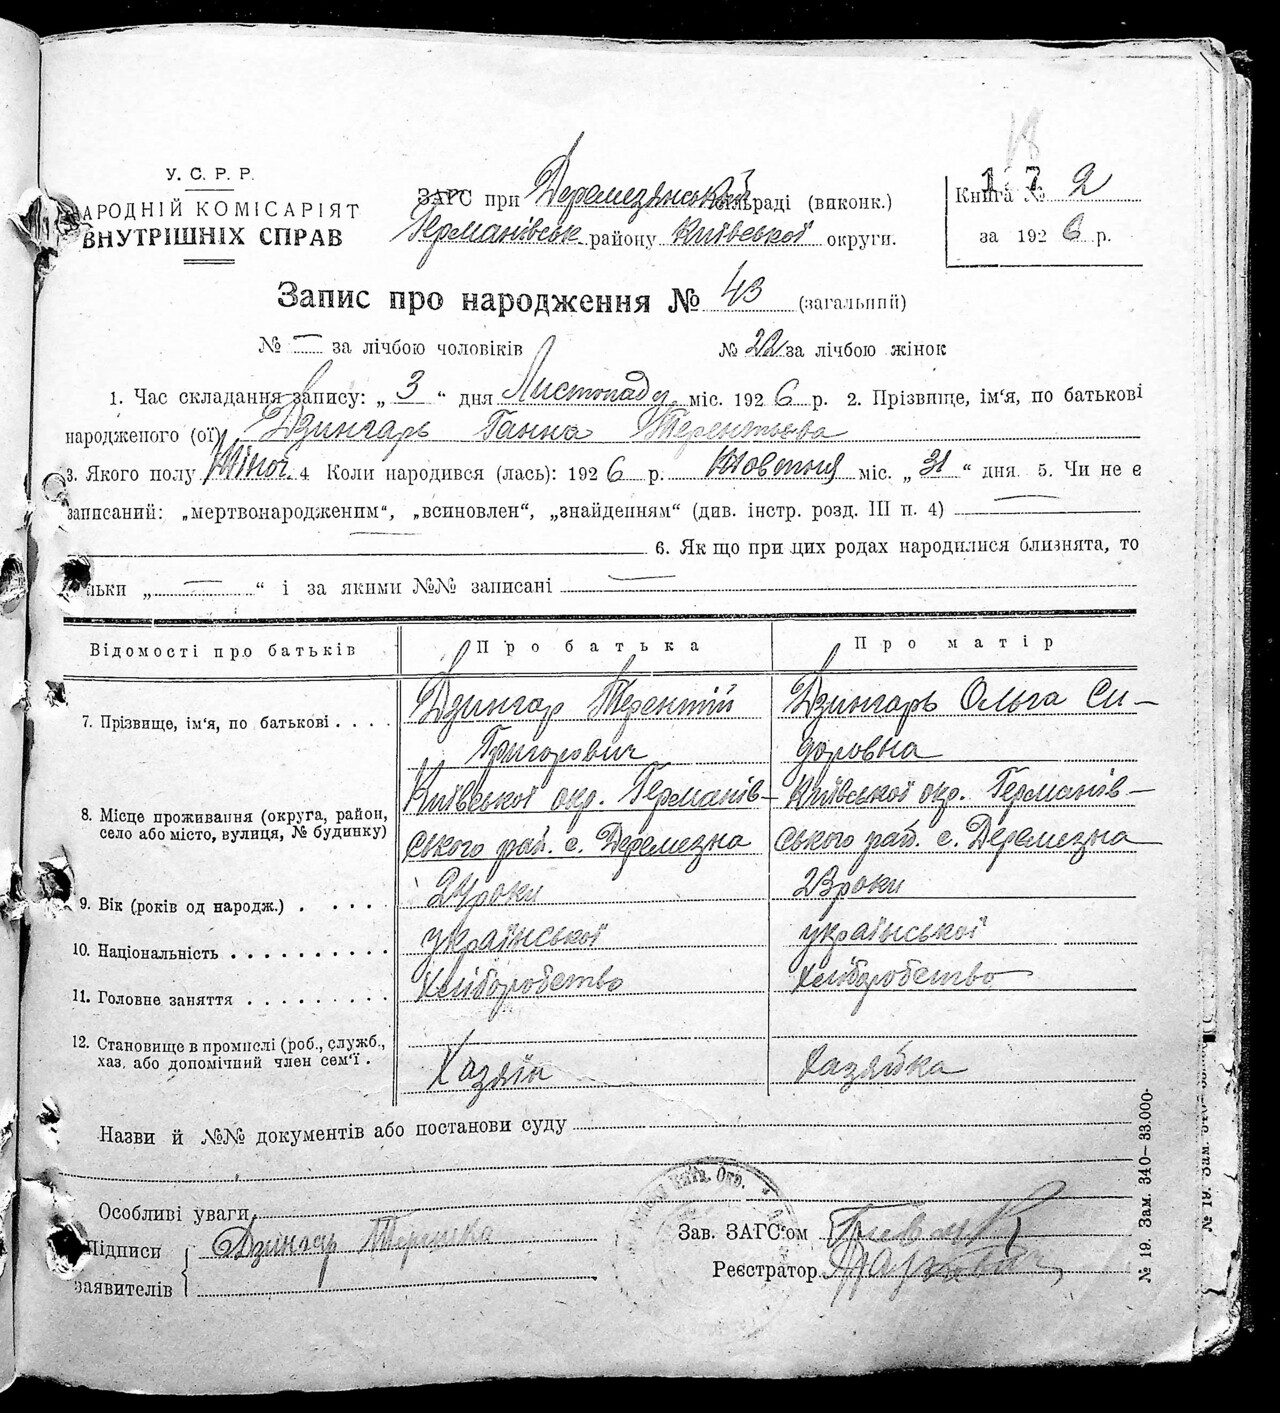 18
У. С. Р. Р.
НАРОДНІЙ КОМІСАРІЯТ
ВНУТРІШНІХ СПРАВ
ЗАГС при Деремезянській сільраді (виконк.)
Германівськ району Київської округи.
172
Книга № 2
за 1926 р.
Запис про народження № 43 (загальний)
№ — за лічбою чоловіків № 22 за лічбою жінок
1. Час складання запису: „ 3 “ дня Листопаду міс. 1926 р. 2. Прізвище, ім'я, по батькові
народженого (ої) Дзингарь Ганна Терентьева
3. Якого полу Жіноч. 4 Коли народився (лась): 1926 р. Жовтня міс. „ 31 “ дня. 5. Чи не є
записаний: „мертвонародженим“, „всиновлен“, „знайденням“ (див. інстр. розд. III п. 4) —
6. Якщо при цих родах народилися близнята, то
льки „ — “ і за якими №№ записані —
Відомості про батьків Про батька Про матір
7. Прізвище, ім'я, по батькові . . . . Дзингар Терентій Григорович Дзингарь Ольга Сидоровна
8. Місце проживання (округа, район, село або місто, вулиця, № будинку) Київської окр. Германівського рай. с. Деремезна Київської окр. Германівського рай. с. Деремезна
9. Вік (років од народж.) . . . . . 24 роки 23 роки
10. Національність . . . . . . . . . . української української
11. Головне заняття . . . . . . . . . Хліборобство Хліборобство
12. Становище в промислі (роб., служб., хаз. або допомічний член сем'ї . Хазяїн Хазяйка
Назви й №№ документів або постанови суду
Особливі уваги
Підписи заявителів { Дзингар Терешко
Київ. Окр.
Зав. ЗАГС'ом
Реєстратор
№ 19. Зам. 340—33.000·
№ 19. Зам.